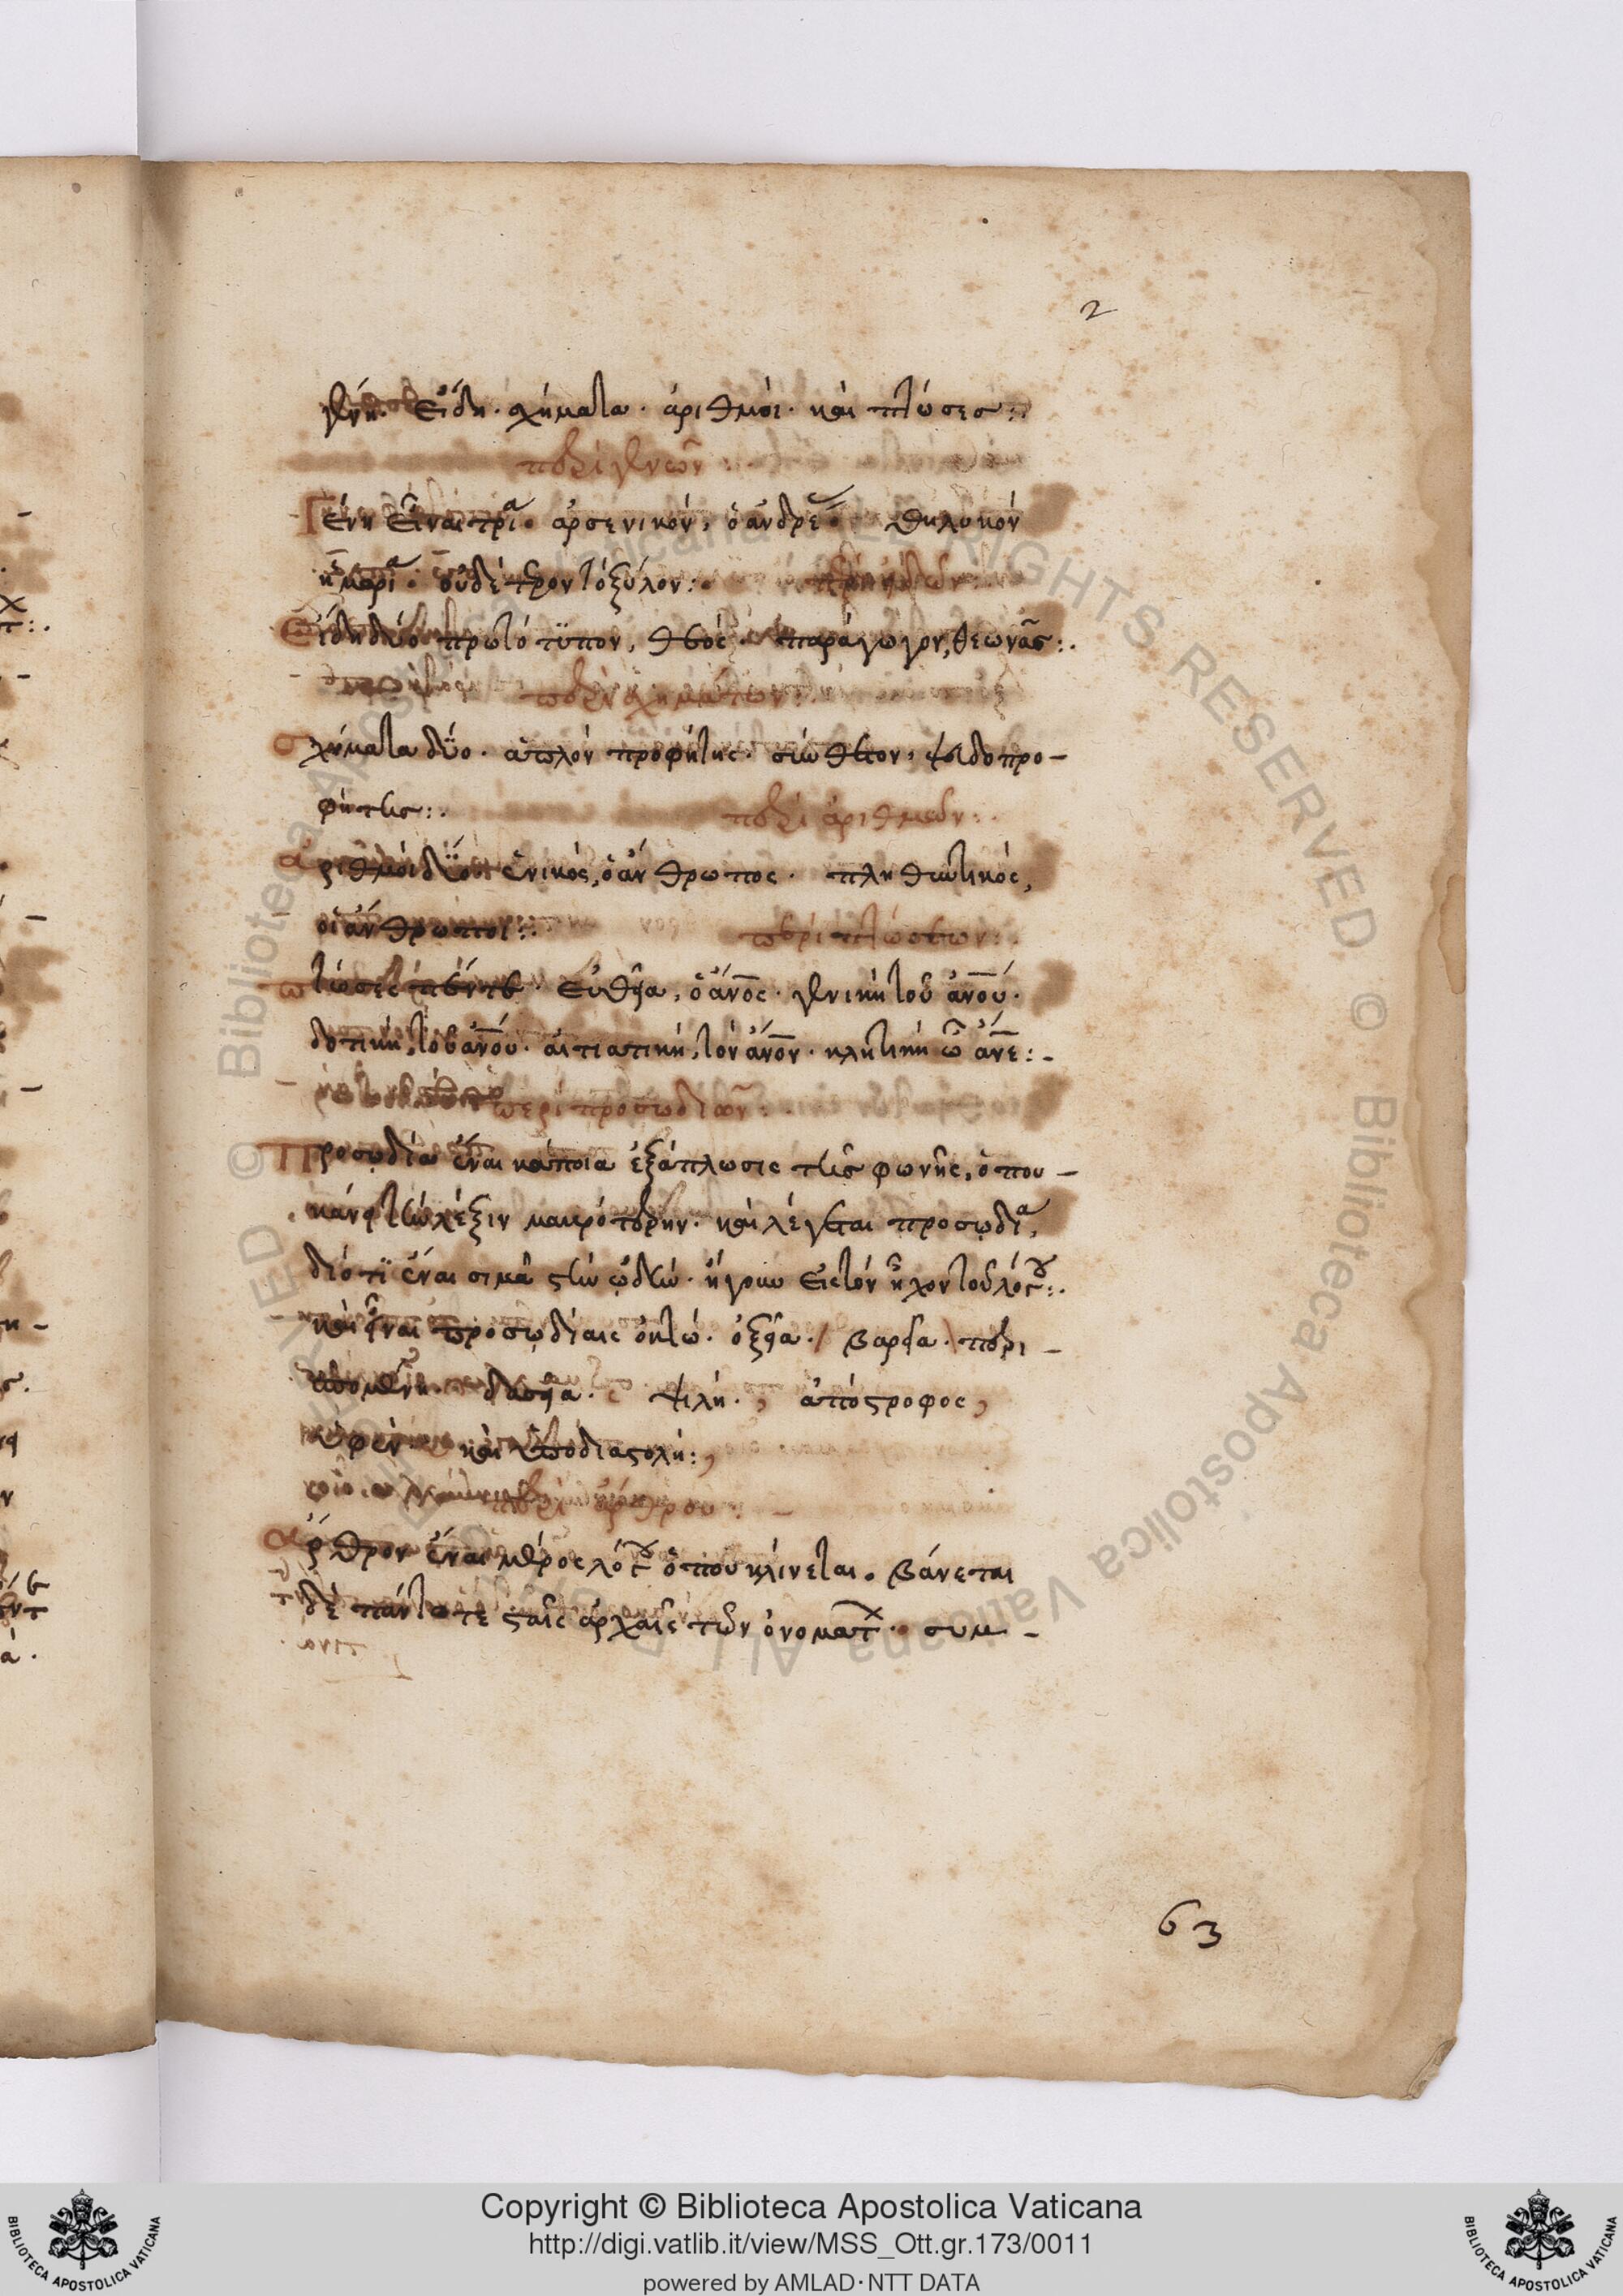 2
γένη· εἴδη· σχήματα· ἀριθμοί· καὶ πτώσεσ:·
περὶ γενῶν:·
Γένη εἶναι τρία· ἀρσενικόν, ὁ ἀνδρέ· θηλυκόν
ἡ μαρία· οὐδέτερον τὸ ξύλον:· περὶ εἰδῶν:
Εἴδη δύο πρωτότϋπον, θεός· παράγωγον, θεωνᾶς:·
περὶ σχημάτων:·
σχήματα δϋο· ἁπλὸν προφήτης· σύνθετον, ψευδοπρο-
φήτης:· περὶ ἀριθμῶν:·
ἀριθμοὶ δϋο ἑνικός, ὁ ἄνθρωπος· πληθυντικός,
οἱ ἄνθρωποι:· περὶ πτώσεων:·
πτώσεις πέντε· εὐθεῖα, ὁ ἄνος· γενικὴ τοῦ ἀνου·
δοτικὴ, τοῦ ἀνου· αἰτιατικὴ, τὸν ἄνον· κλητικὴ ὦ ἄνε:-
περὶ προσωδιῶν:
Προσῳδία ἔναι κάποια ἐξάπλωσις τῆς φωνῆς, ὁπου-
κάνει τὴν λέξιν μακρότερην· καὶ λέγεται προσῳδία,
διότϊ ἔναι σιμὰ στὴν ᾠδὴν· ἤγουν εἰς τὸν ἦχον τοῦ λόγου:·
καὶ εἶναι προσῳδίαις ὀκτώ· ὀξεῖα· / βαρεῖα· \ περι-
σπομένη· δασεῖα· ψιλή· , ἀπόστροφος,
ὑφέν· καὶ ὑποδιαστολή:,
περὶ ἄρθρου:-
ἄρθρον ἔναι μέρος λόγου ὁποῦ κλίνεται. βάνεται
δὲ πάντοτε σταῖς ἀρχαῖς τῶν ὀνομάτ· συμ-
63
Copyright © Biblioteca Apostolica Vaticana
http://digi.vatlib.it/view/MSS_Ott.gr.173/0011
powered by AMLAD·NTT DATA
BIBLIOTECA APOSTOLICA VATICANA
BIBLIOTECA APOSTOLICA VATICANA